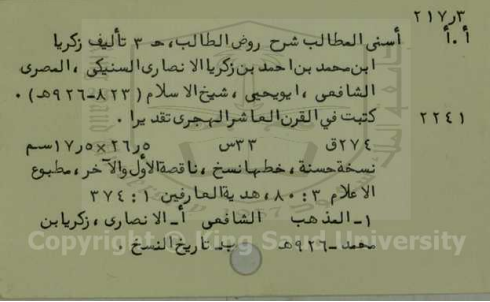 ٢١٧٫٣
أ ٠ أ أسنى المطالب شرح روض الطالب، حـ ٣ تأليف زكريا
ابن محمد بن احمد بن زكريا الانصارى السنيكى ، المصرى
الشافعى ، ابويحيى ، شيخ الاسلام ( ٨٢٣-٩٢٦هـ) ٠
٢٢٤١ كتبت في القرن العاشر الهجرى تقديرا ٠
٢٧٤ق ٣٣س ٢٦٫٥×١٧٫٥سم
نسخة حسنة ، خطها نسخ ، ناقصة الأول والآخر ، مطبوع
الاعلام ٣ : ٨٠ ، هدية العارفين ١ : ٣٧٤
١- المذهب الشافعى أ- الانصارى ، زكريا بن
محمد -٩٢٦هـ ب- تاريخ النسخ ٠
Copyright © King Saud University